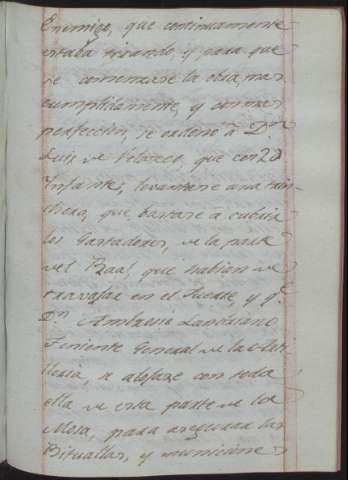 Enemigo, que continuamente
estaba tirando, y para que
se comenzase la obra, mas
cumplidamente, y con mas
perfeccion, se ordenó á Dn.
Luis de Velasco, que con 20
Infantes, levantase una trin-
chera, que bastase á cubrir
los Gastadores, de la parte
del Real, que habian de
travajar en el Puente, y qe.
Dn. Ambrosio Landriano
Teniente General de la Cava-
lleria, se alojase con toda
ella de esta parte de la
Mosa, para asegurar las
Bituallas, y municione